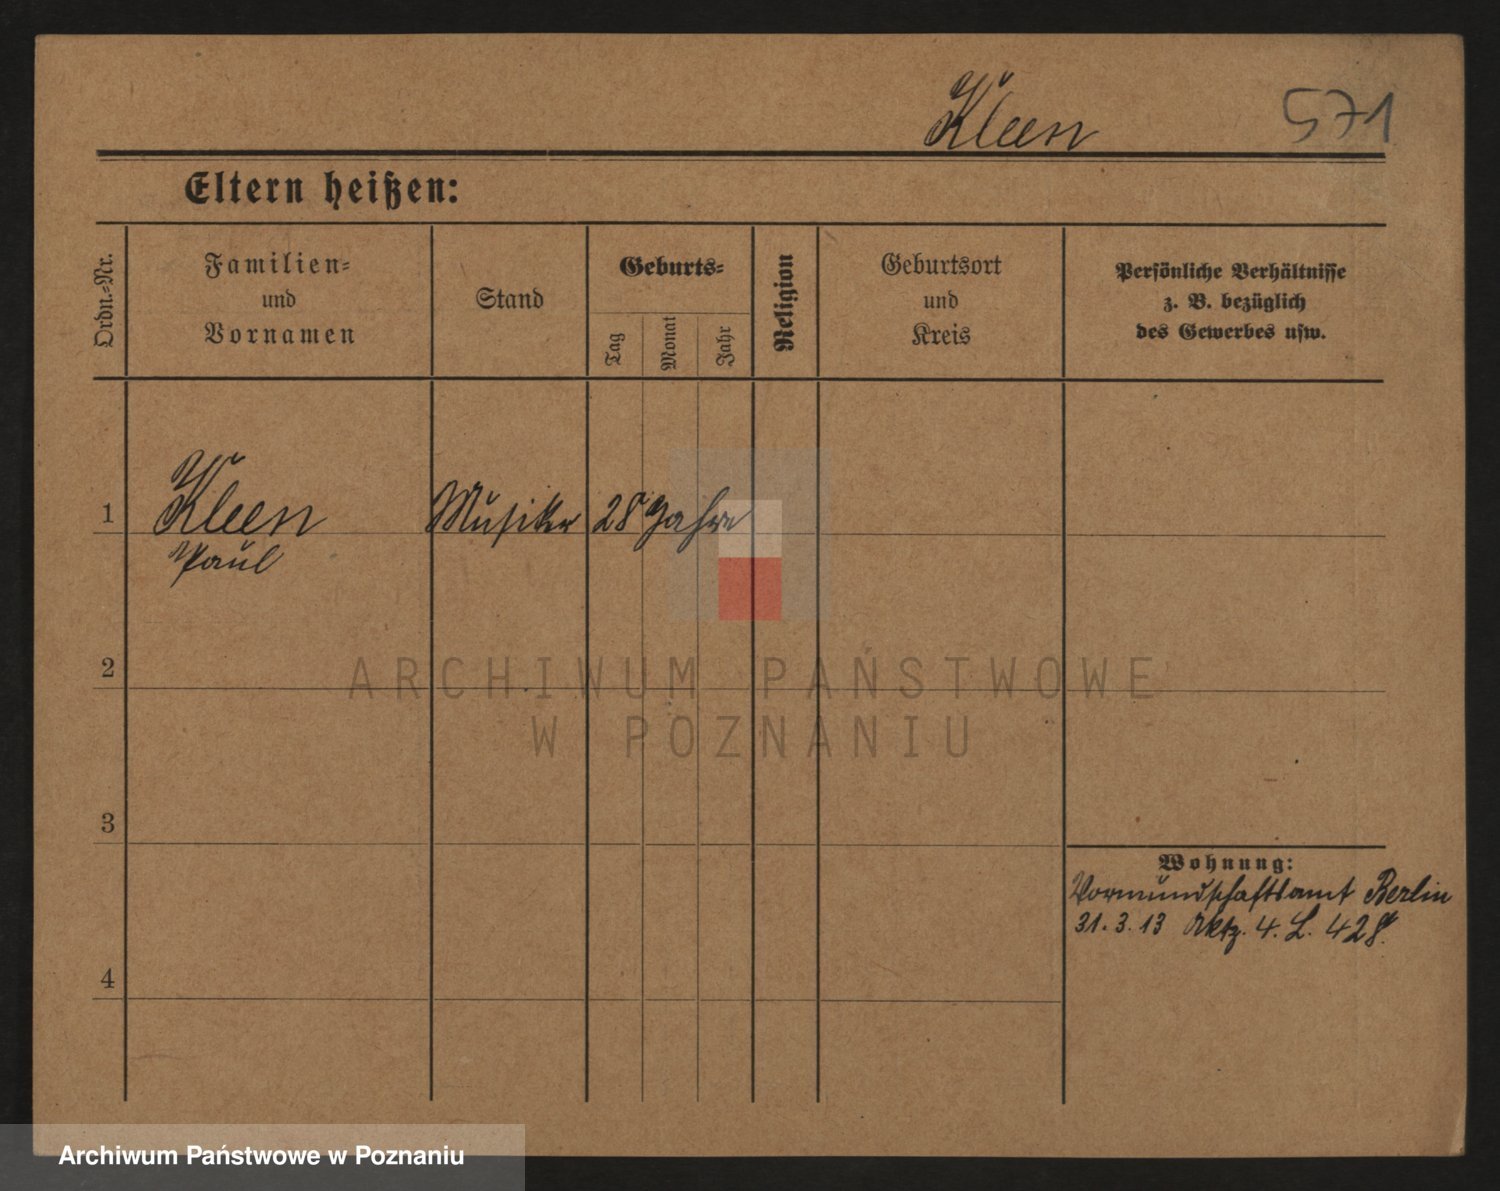 Kleen
571
Eltern heißen:
Ordn.-Nr.
Familien-
und
Vornamen
Stand
Geburts-
Tag
Monat
Jahr
Religion
Geburtsort
und
Kreis
Persönliche Verhältnisse
z. B. bezüglich
des Gewerbes usw.
1
Kleen
Paul
Musiker
28 Jahre
2
3
4
Wohnung:
Vormundschaftsamt Berlin
31. 3. 13 Aktz. 4. L. 428.
ARCHIWUM PAŃSTWOWE
W POZNANIU
Archiwum Państwowe w Poznaniu